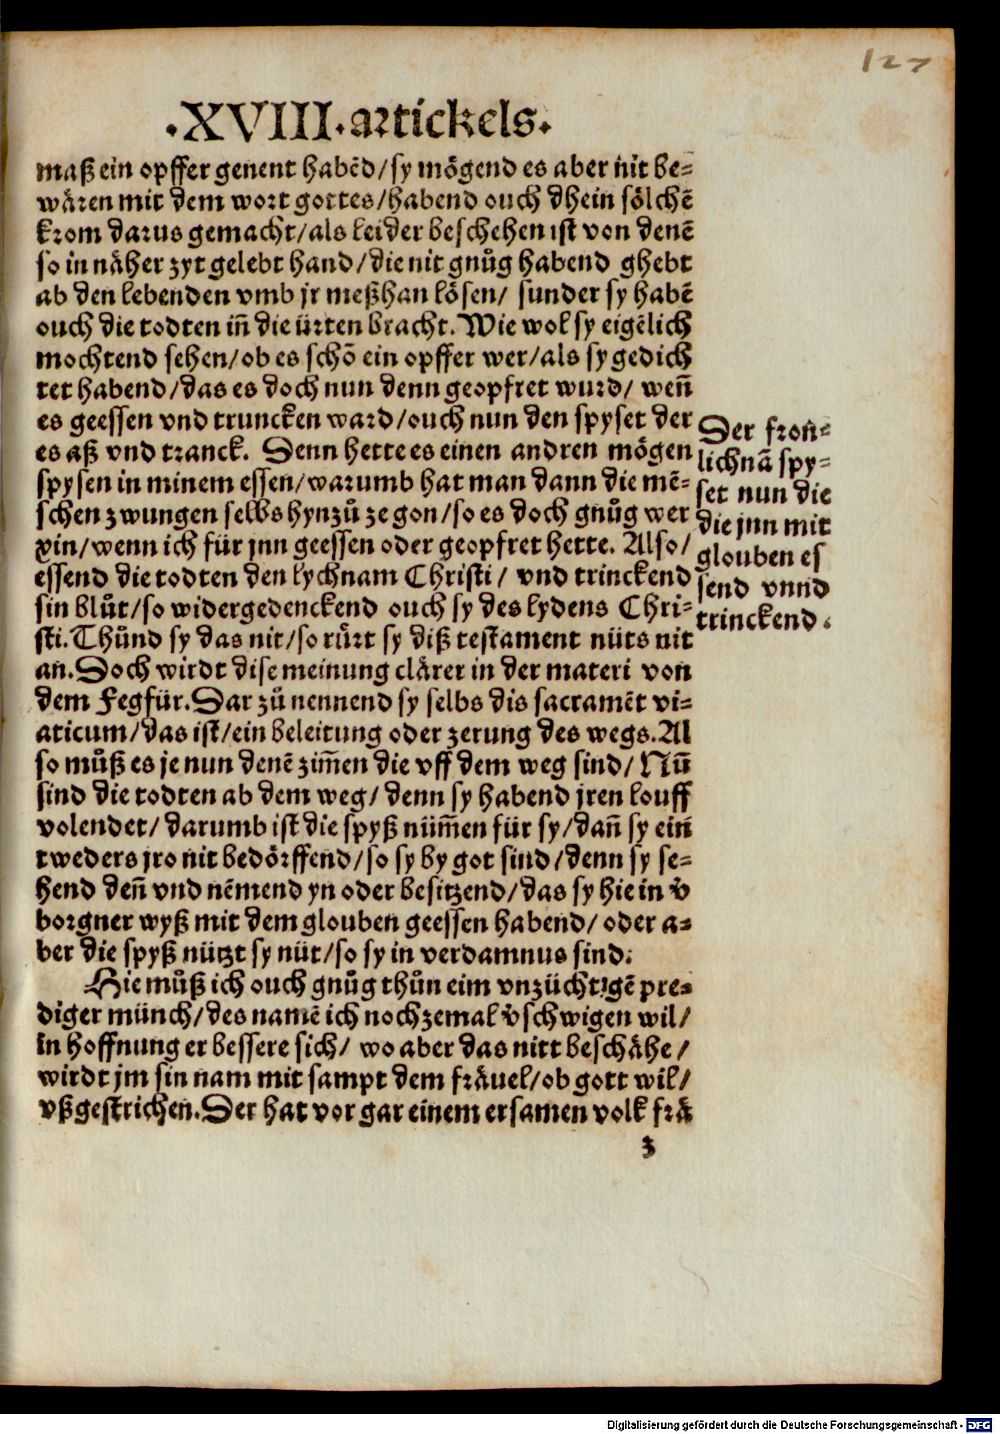 127
.XVIII.artickels.
maß ein opffer genent habēd/sy mögend es aber nit be-
wären mit dem wort gottes/habend ouch dhein sölchē
krom darus gemacht/als leider beschehen ist von denē
so in näher zyt gelebt hand/die nit gnůg habend ghebt
ab den lebenden vmb jr meßhan lösen/ sunder sy habē
ouch die todten iñ die ürten bracht.Wie wol sy eigēlich
mochtend sehen/ob es schō ein opffer wer/als sy gedich
tet habend/das es doch nun denn geopfret wurd/ weñ
es geessen vnd truncken ward/ouch nun den spyset der
es aß vnd tranck. Denn hette es einen andren mögen
spysen in minem essen/warumb hat man dann die mē-
schen zwungen selbs hynzů ze gon/so es doch gnůg wer
xin/wenn ich für jnn geessen oder geopfret hette. Also/
essend die todten den lychnam Christi/ vnd trinckend
sin blůt/so widergedenckend ouch sy des lydens Chri-
sti.Thůnd sy das nit/so růrt sy diß testament nüts nit
an.Doch wirdt dise meinung clärer in der materi von
dem Fegfür.Dar zů nennend sy selbs dis sacramēt vi-
aticum/das ist/ein beleitung oder zerung des wegs.Al
so můß es je nun denē zim̄en die vff dem weg sind/ Nū
sind die todten ab dem weg/ denn sy habend jren louff
volendet/ darumb ist die spyß nüm̄en für sy/dañ sy ein
tweders jro nit bedörffend/so sy by got sind/denn sy se-
hend deñ vnd nēmend yn oder besitzend/das sy hie in v̄
borgner wyß mit dem glouben geessen habend/ oder a-
ber die spyß nützt sy nüt/so sy in verdamnus sind.
Hie můß ich ouch gnůg thůn eim vnzüchtigē pre-
diger münch/des namē ich noch zemal v̄schwigen wil/
in hoffnung er bessere sich/ wo aber das nitt beschähe/
wirdt jm sin nam mit sampt dem fräuel/ob gott wil/
vßgestrichen.Der hat vor gar einem ersamen volk frä
Der fron-
lichnā spy-
set nun die
die jnn mit
glouben es
send vnnd
trinckend.
z
Digitalisierung gefördert durch die Deutsche Forschungsgemeinschaft - DFG